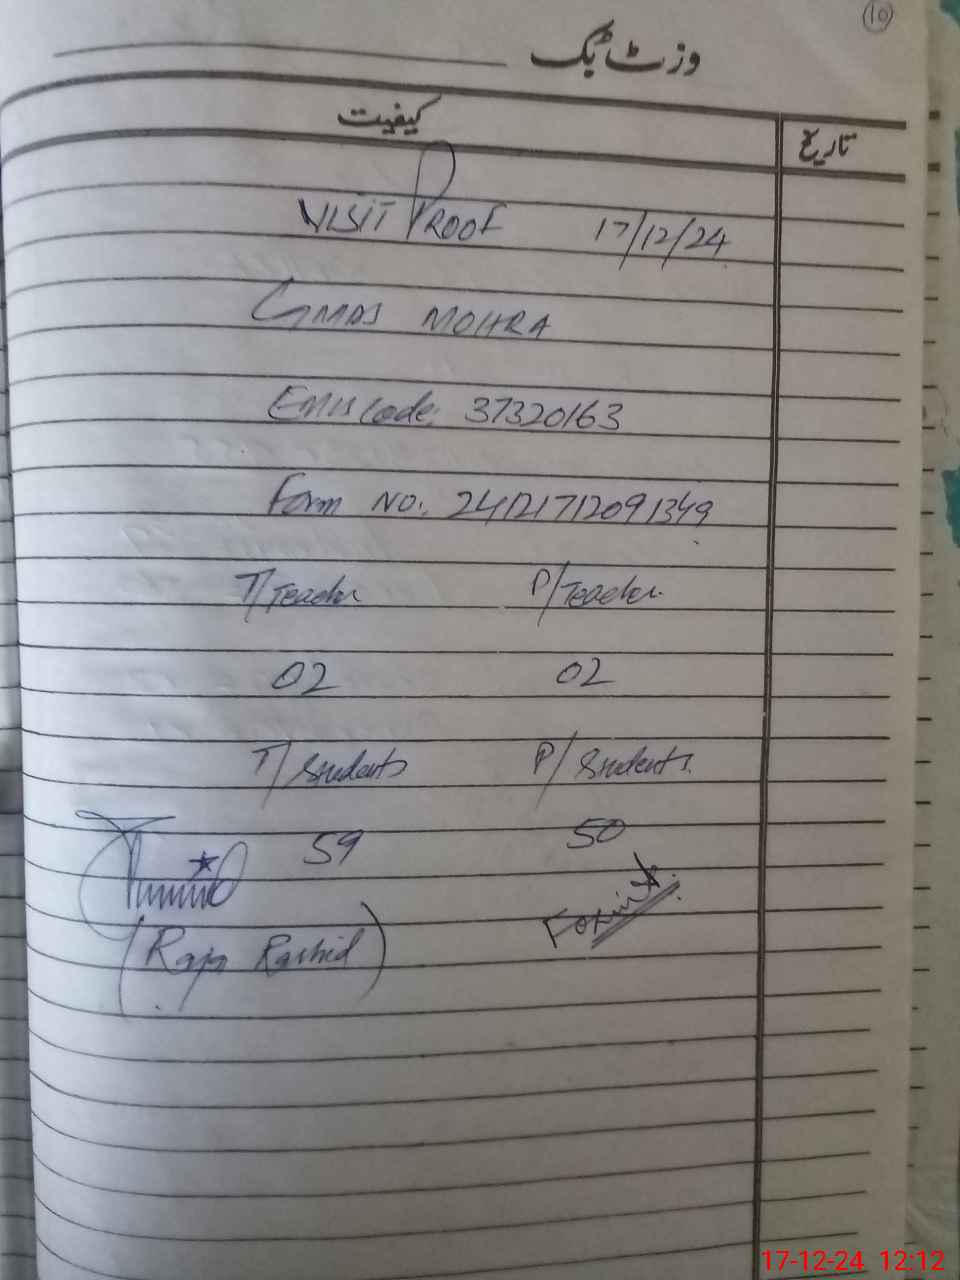 10
وزٹ بک
کیفیت تاریخ
VISIT PROOF 17/12/24
GMDS MOHRA
Emis Code: 37320163
Form NO: 24121712091349
T/Teacher P/Teacher.
02 02
T/Students P/Students.
59 50
(Raja Rashid)
17-12-24 12:12